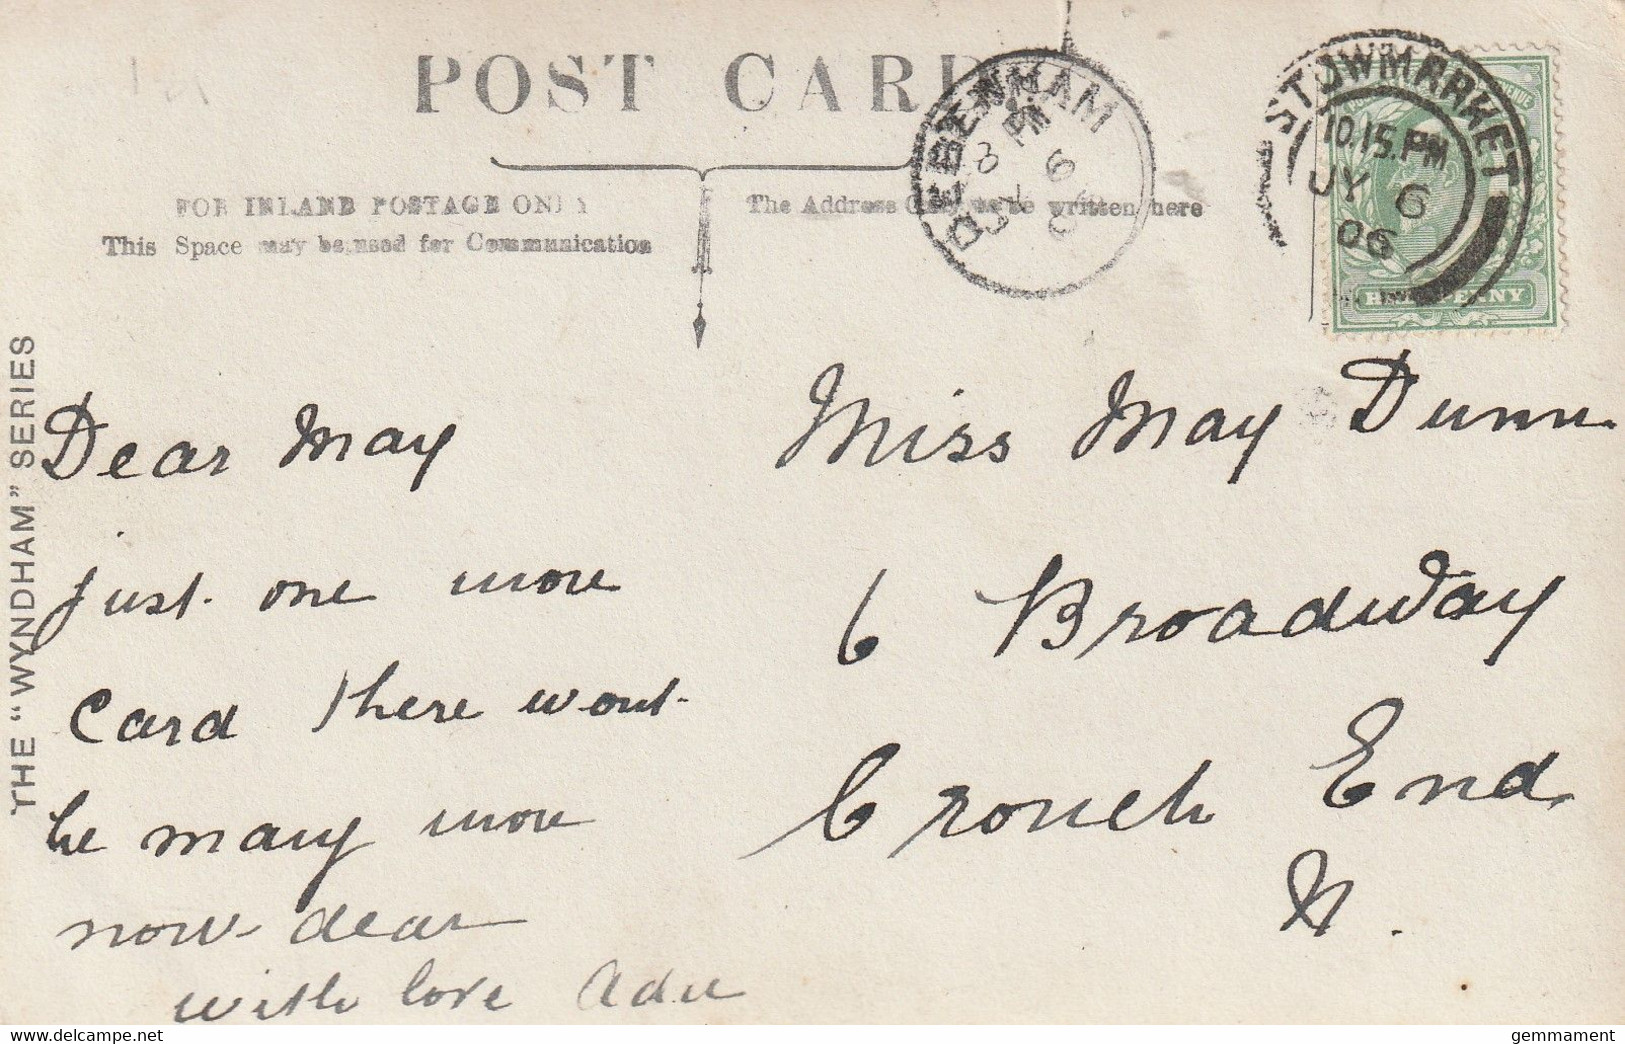 POST CARD
FOR INLAND POSTAGE ONLY
This Space may be used for Communication
The Address Only to be written here
DEBENHAM
8 PM
JY 6
06
STOWMARKET
10.15.PM
JY 6
06
HALFPENNY
THE "WYNDHAM" SERIES
Dear May
just one more
Card there wont
be many more
now dear
with love
Miss May Dunn
6 Broadway
Crouch End
N.
delcampe.net
gemmament